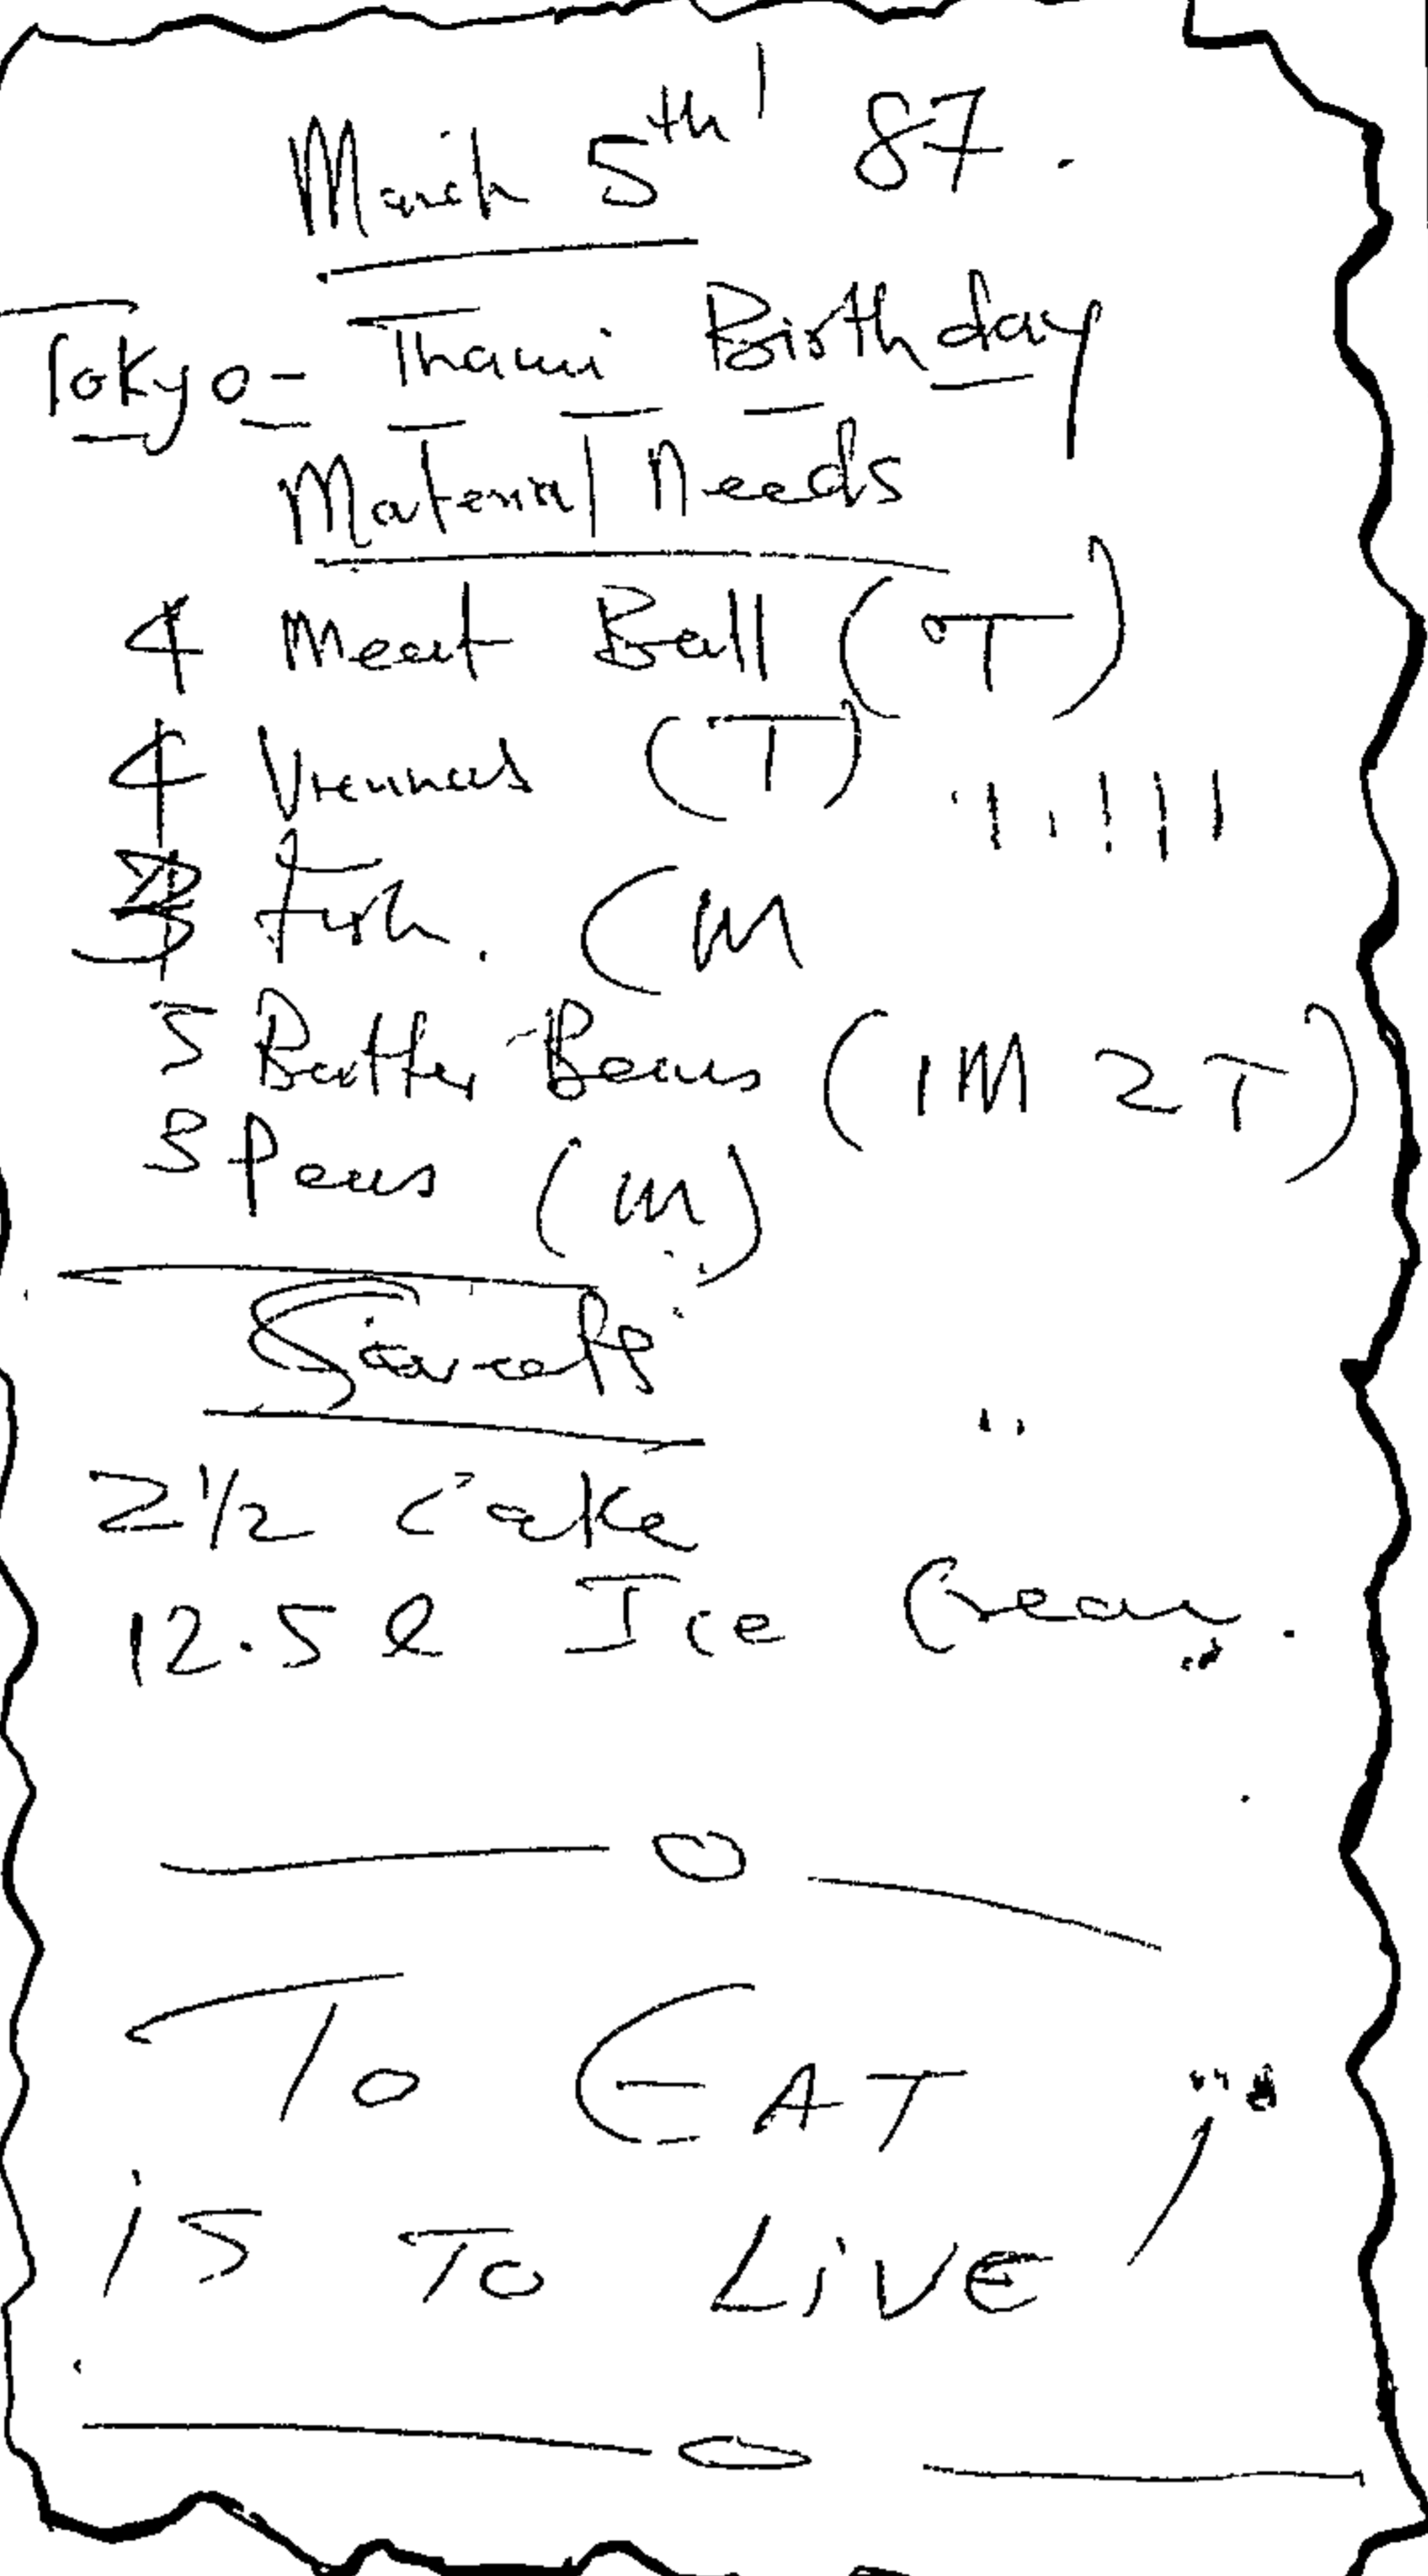 March 5th 87.
Tokyo - Thami Birthday
Material Needs
4 Meat Ball (T)
4 Viennas (T)
3 Fish. (M
5 Butter Beans (1M 2T)
3 Peas (M)
Sweets
2 1/2 Cake
12.5 l Ice Cream.
To EAT
is To LiVE